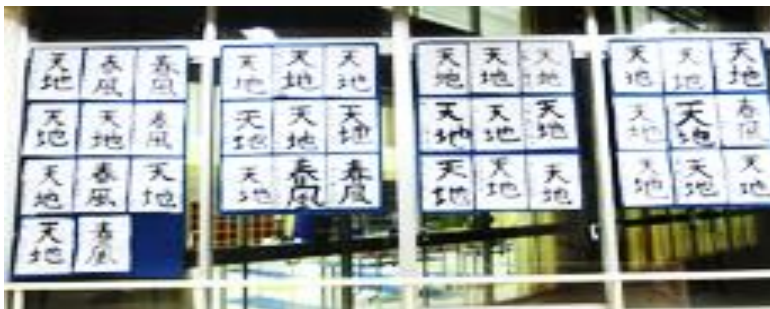 天地 春風 春風
天地 天地 春風
天地 春風 天地
天地 春風
天地 天地 天地
天地 天地 天地
天地 春風 春風
天地 天地 天地
天地 天地 天地
天地 天地 天地
天地 天地 天地
天地 天地 春風
天地 天地 天地